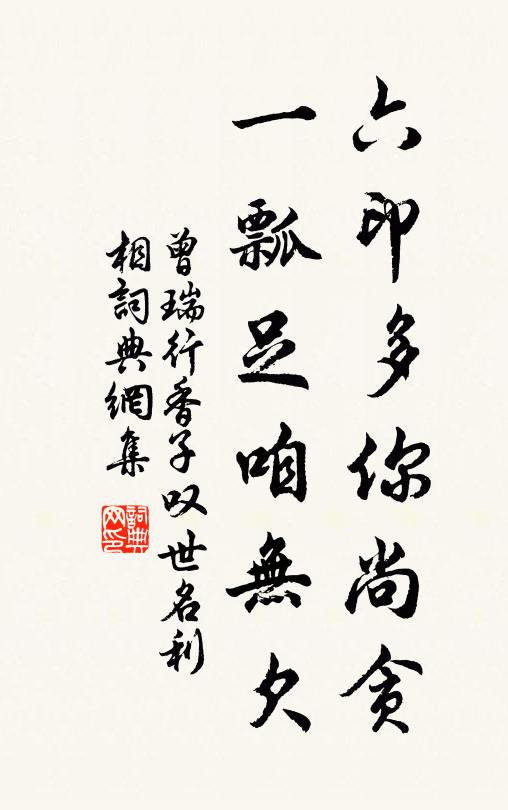 六印多你尚貪
一瓢足咱無欠
曾瑞行香子叹世名利
相詞典網集
詞典网印